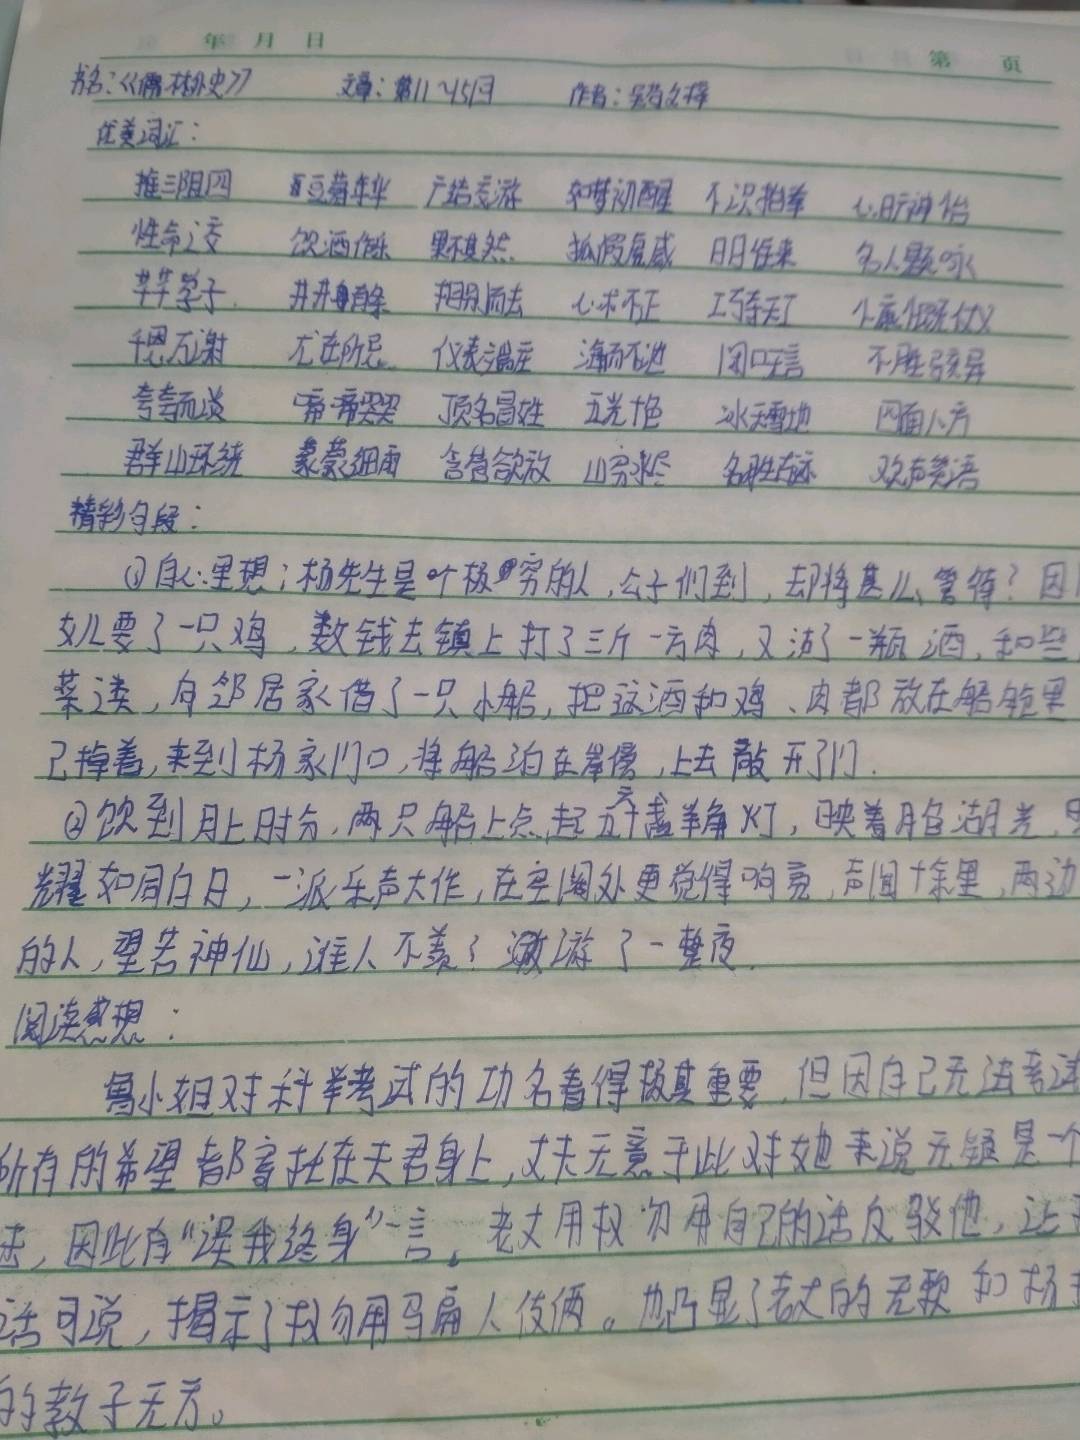 年 月 日 第 页
书名:《儒林外史》 文章:第11~15回 作者:吴敬梓
优美词汇:
推三阻四 豆蔻年华 广结交游 如梦初醒 不识抬举 心旷神怡
性命之交 饮酒作乐 果不其然 狐假虎威 日日往来 名人题咏
莘莘学子 井井有条 拂袖而去 心术不正 巧夺天工 仗义
千恩万谢 尤在所忌 仪表端庄 闭口不言 不胜骇异
夸夸而谈 啼啼哭哭 顶名冒姓 五光十色 冰天雪地 四面八方
群山环绕 蒙蒙细雨 含苞欲放 山穷水尽 名胜古迹 欢声笑语
精彩句段:
①自心里想:杨先生是个极穷的人,公子们到,却将甚么管待?因
女儿要了一只鸡,数钱去镇上打了三斤一方肉,又沽了一瓶酒,和些
菜之类,向邻居家借了一只小船,把这酒和鸡、肉都放在船舱里
己掉着,来到杨家门口,将船泊在岸傍,上去敲开了门.
②饮到月上时分,两只船上点起五六十盏羊角灯,映着月色湖光,
耀如同白日,一派乐声大作,在空阔处更觉得响亮,声闻十余里,两边
的人,望若神仙,谁人不羡?遨游了一整夜.
阅读感想:
鲁小姐对科举考试的功名看得极其重要,但因自己无法考试
所有的希望都寄托在夫君身上,丈夫无意于此对她来说无疑是一个
因此有“误我终身”一言。老丈用权勿用自己的话反驳他,让
话可说,揭示了权勿用骗人伎俩。也凸显了老丈的无 和杨
的教子无方。